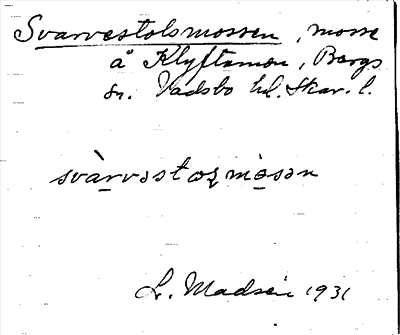 Svarvestolsmossen, mosse
å Klyftamon, Bergs
sn. Vadsbo hd. Skar. l.
svàrvəstoꜫmo̲sən
L. Madsén 1931